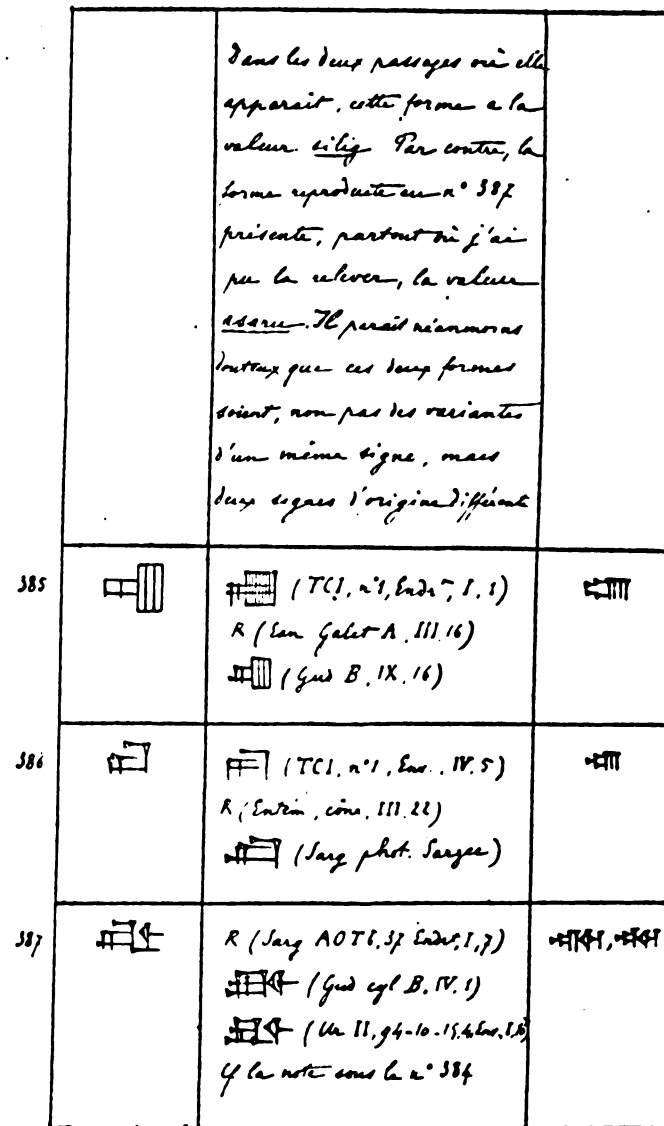 Dans les deux passages où elle
apparait, cette forme a la
valeur silig Par contre, la
forme reproduite au n° 387
présente, partout où j'ai
pu la relever, la valeur
asaru. Il parait néanmoins
douteux que ces deux formes
soient, non pas des variantes
d'un même signe, mais
deux signes d'origine différente
385
(TCI, n°1, Endrt, I, 1)
R (Ean Galet A, III, 16)
(Gud B, IX, 16)
386
(TCI, n°1, Env., IV, 5)
R (Entém, cône, III, 22)
(Sarg phot. Sarzec)
387
R (Sarg AOTb, 37 Endrt, I, 7)
(Gud cyl B, IV, 1)
(Ur II, 94-10-15, 4,
Cf la note sous le n° 384